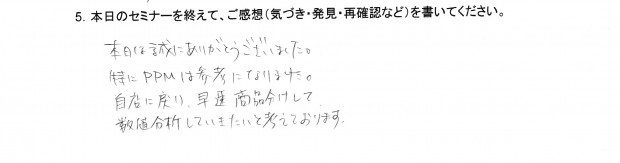 5. 本日のセミナーを終えて、ご感想（気づき・発見・再確認など）を書いてください。
本日は誠にありがとうございました。
特にPPMは参考になりました。
自店に戻り、早速商品分けして
数値分析していきたいと考えております。